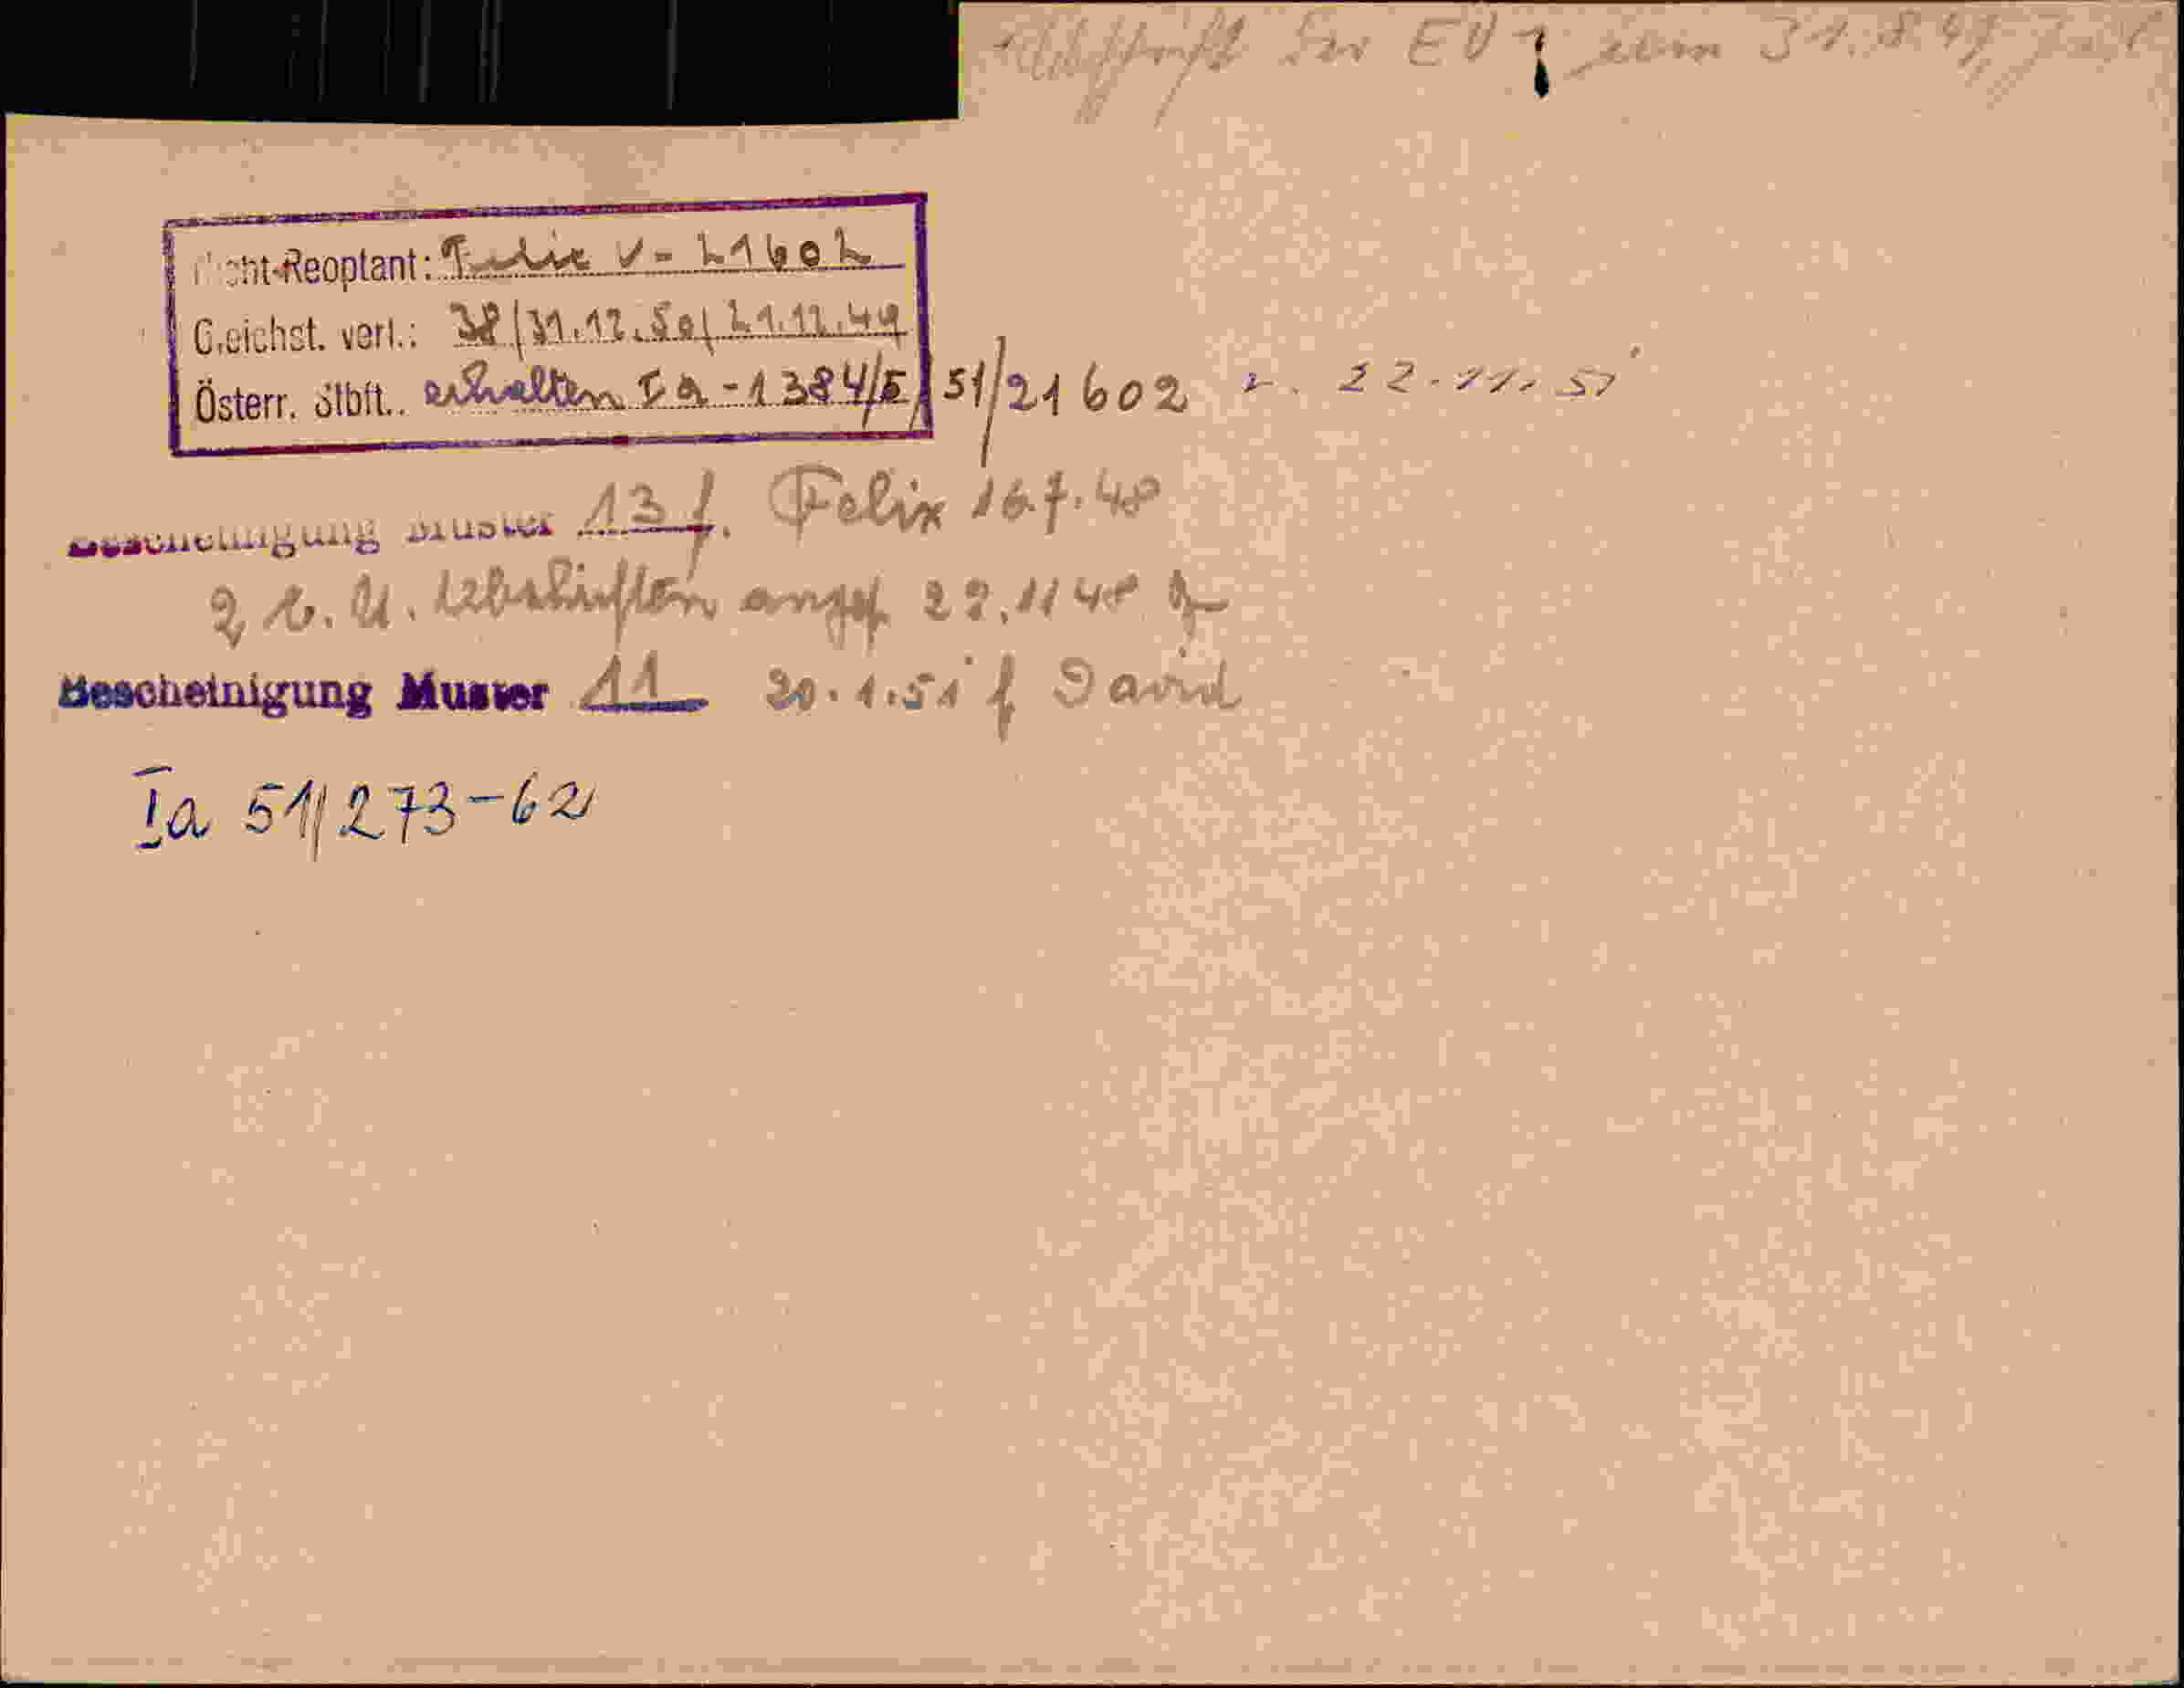 Abschrift der EV zum 31.8.48
Nicht-Reoptant: Felix V - 21602
Gleichst. verl.: 38/31.12.50/21.12.49
Österr. Stbft.. erhalten Ia - 1384/5/51/21602 v. 22.11.51
Bescheinigung Muster 13 f. Felix 16.7.48
2 b. U. Abschriften angef 22.11 48
Bescheinigung Muster 11 20.1.51 f David
Ia 51/273-62